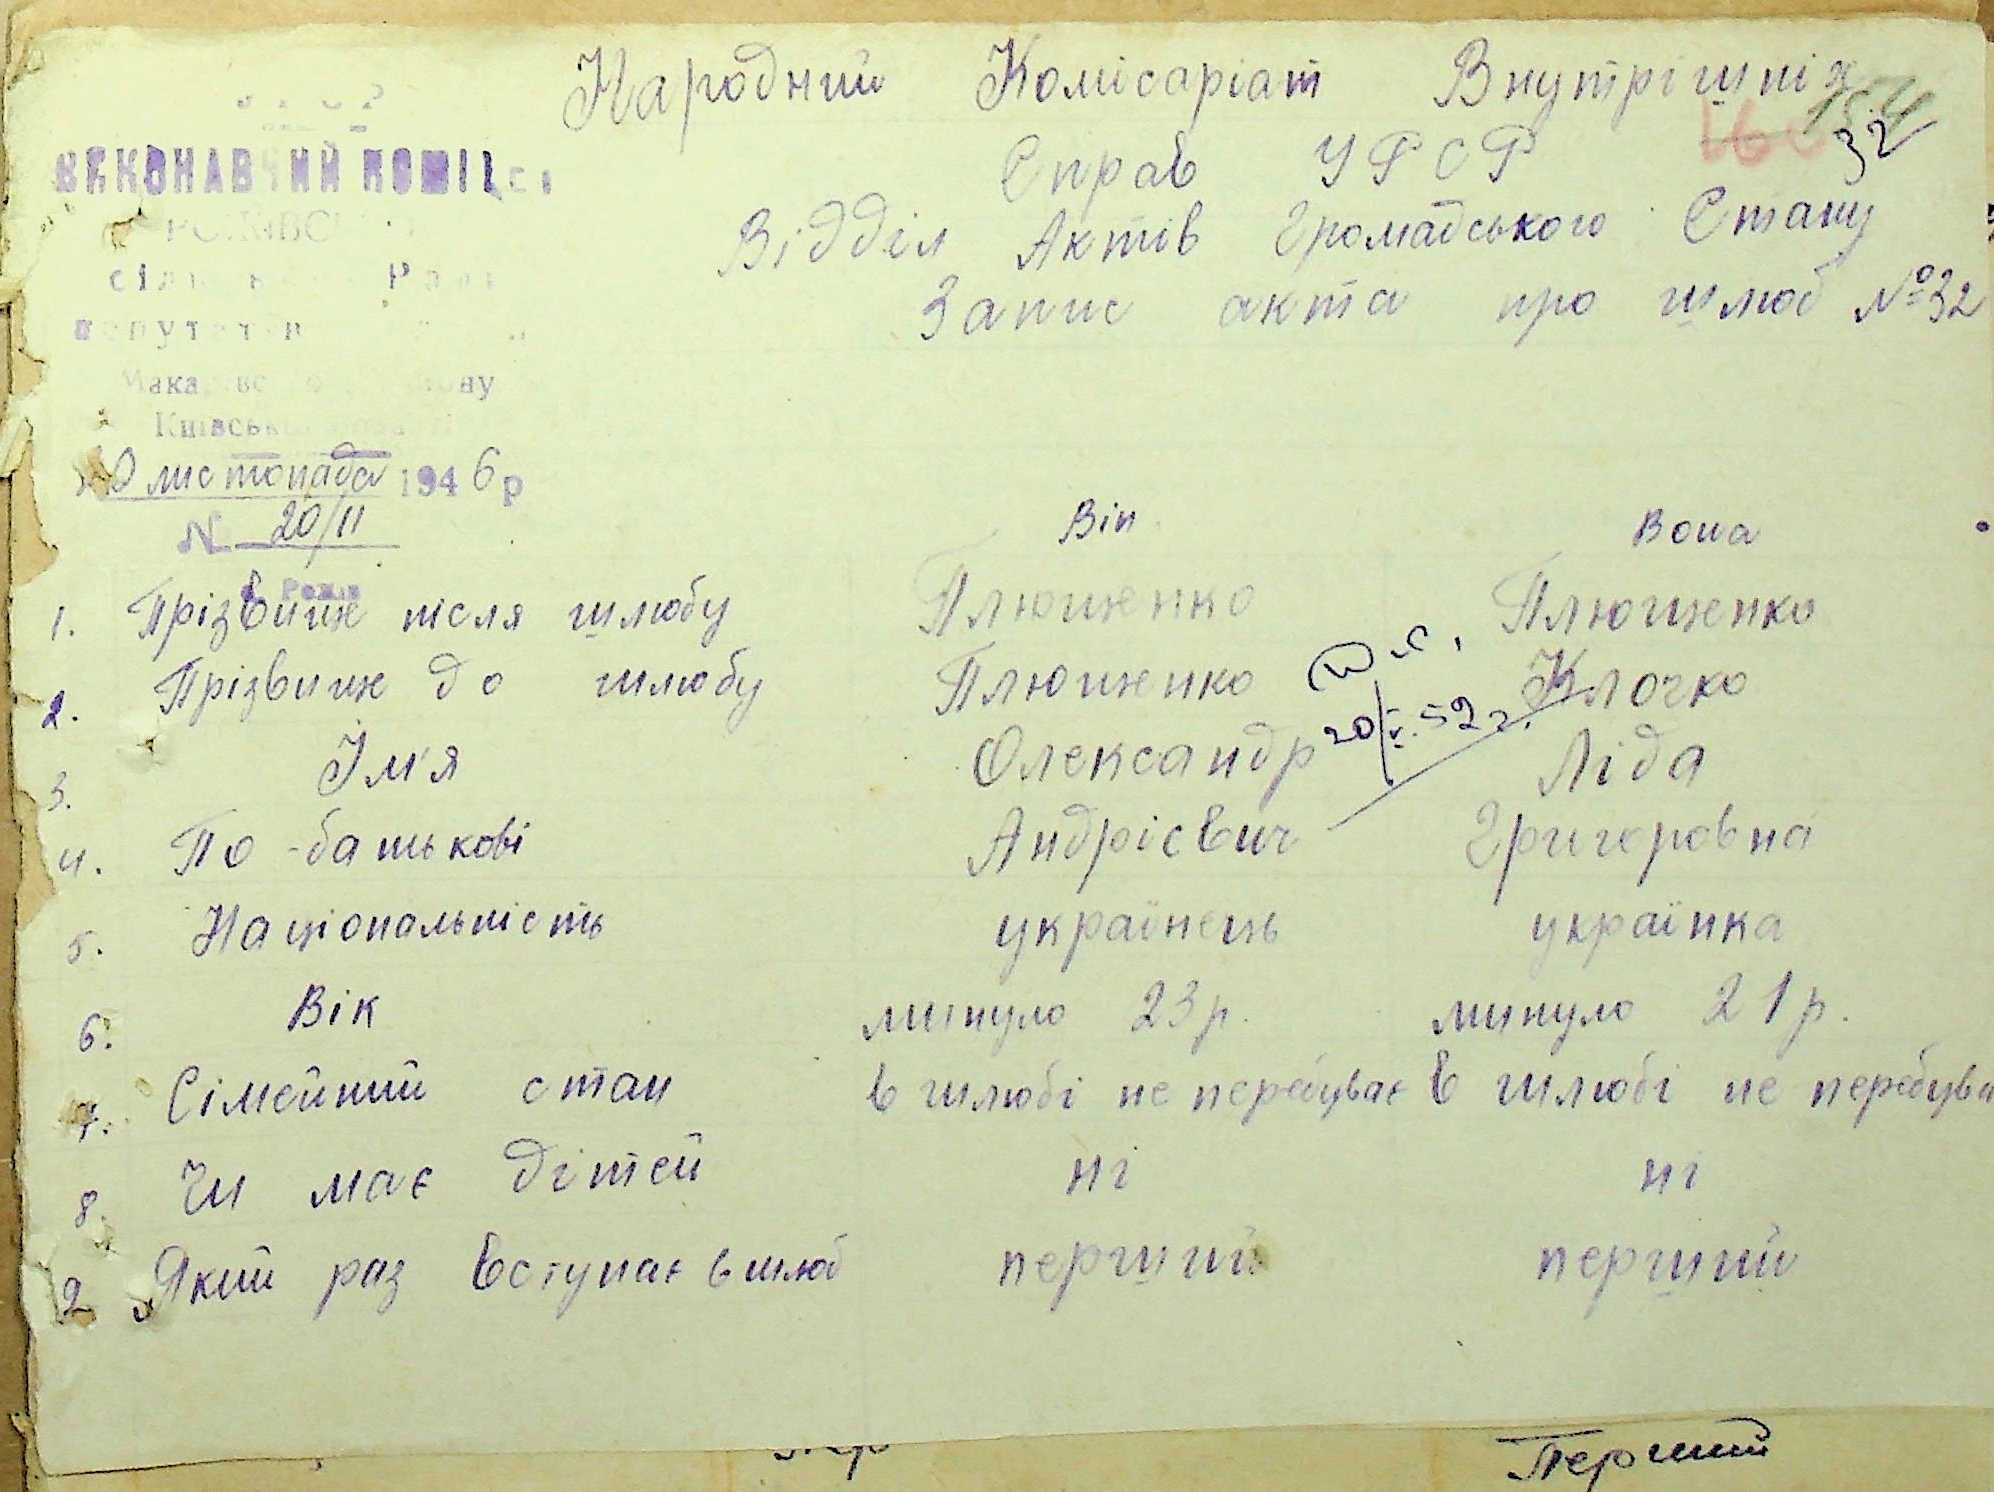 Народний Комісаріат Внутрішніх
154
160
32
Справ УРСР
Відділ Актів Громадського Стану
Запис акта про шлюб №32
УРСР
ВИКОНАВЧИЙ КОМІТЕТ
РОЖІВСЬКОЇ
сільської Ради
депутатів
Макарівського району
Київської області
20 листопада 1946 р
N 20/11
с. Рожів
Він Вона
1. Прізвище після шлюбу Плющенко Плющенко
2. Прізвище до шлюбу Плющенко Клочко
20/V.52 г.
3. Ім'я Олександр Ліда
4. По-батькові Андрієвич Григоровна
5. Національність українець українка
6. Вік минуло 23 р. минуло 21 р.
7. Сімейний стан в шлюбі не перебуває в шлюбі не перебува
8. Чи має дітей ні ні
9 Який раз вступає в шлюб перший перший
Перший